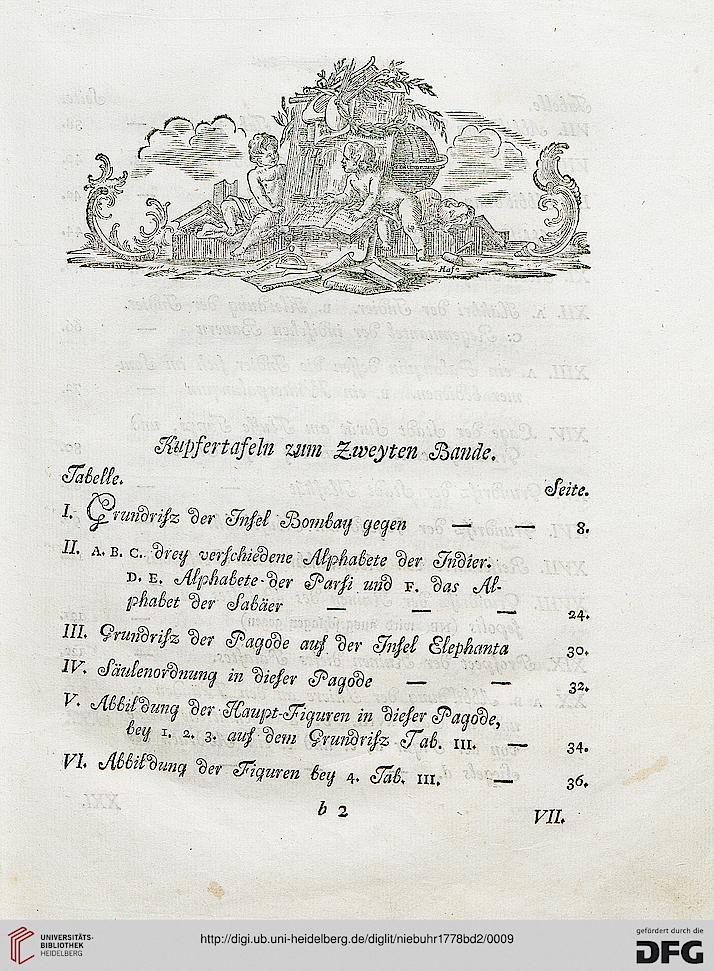 Hafe
Kupfertafeln zum Zweyten Bande.
Tabelle.
Seite.
I. Grundriſz der Inſel Bombay gegen — — 8.
II. A. B. C. drey verſchiedene Alphabete der Indier.
D. E. Alphabete der Parſi und F. das Al-
phabet der Sabäer — — — 24.
III. Grundriſz der Pagode auf der Inſel Elephanta 30.
IV. Säulenordnung in dieſer Pagode — — 32.
V. Abbildung der Haupt-Figuren in dieſer Pagode,
bey 1. 2. 3. auf dem Grundriſz Tab. III. — 34.
VI. Abbildung der Figuren bey 4. Tab. III. — 36.
b 2
VII.
UNIVERSITÄTS-
BIBLIOTHEK
HEIDELBERG
http://digi.ub.uni-heidelberg.de/diglit/niebuhr1778bd2/0009
gefördert durch die
DFG